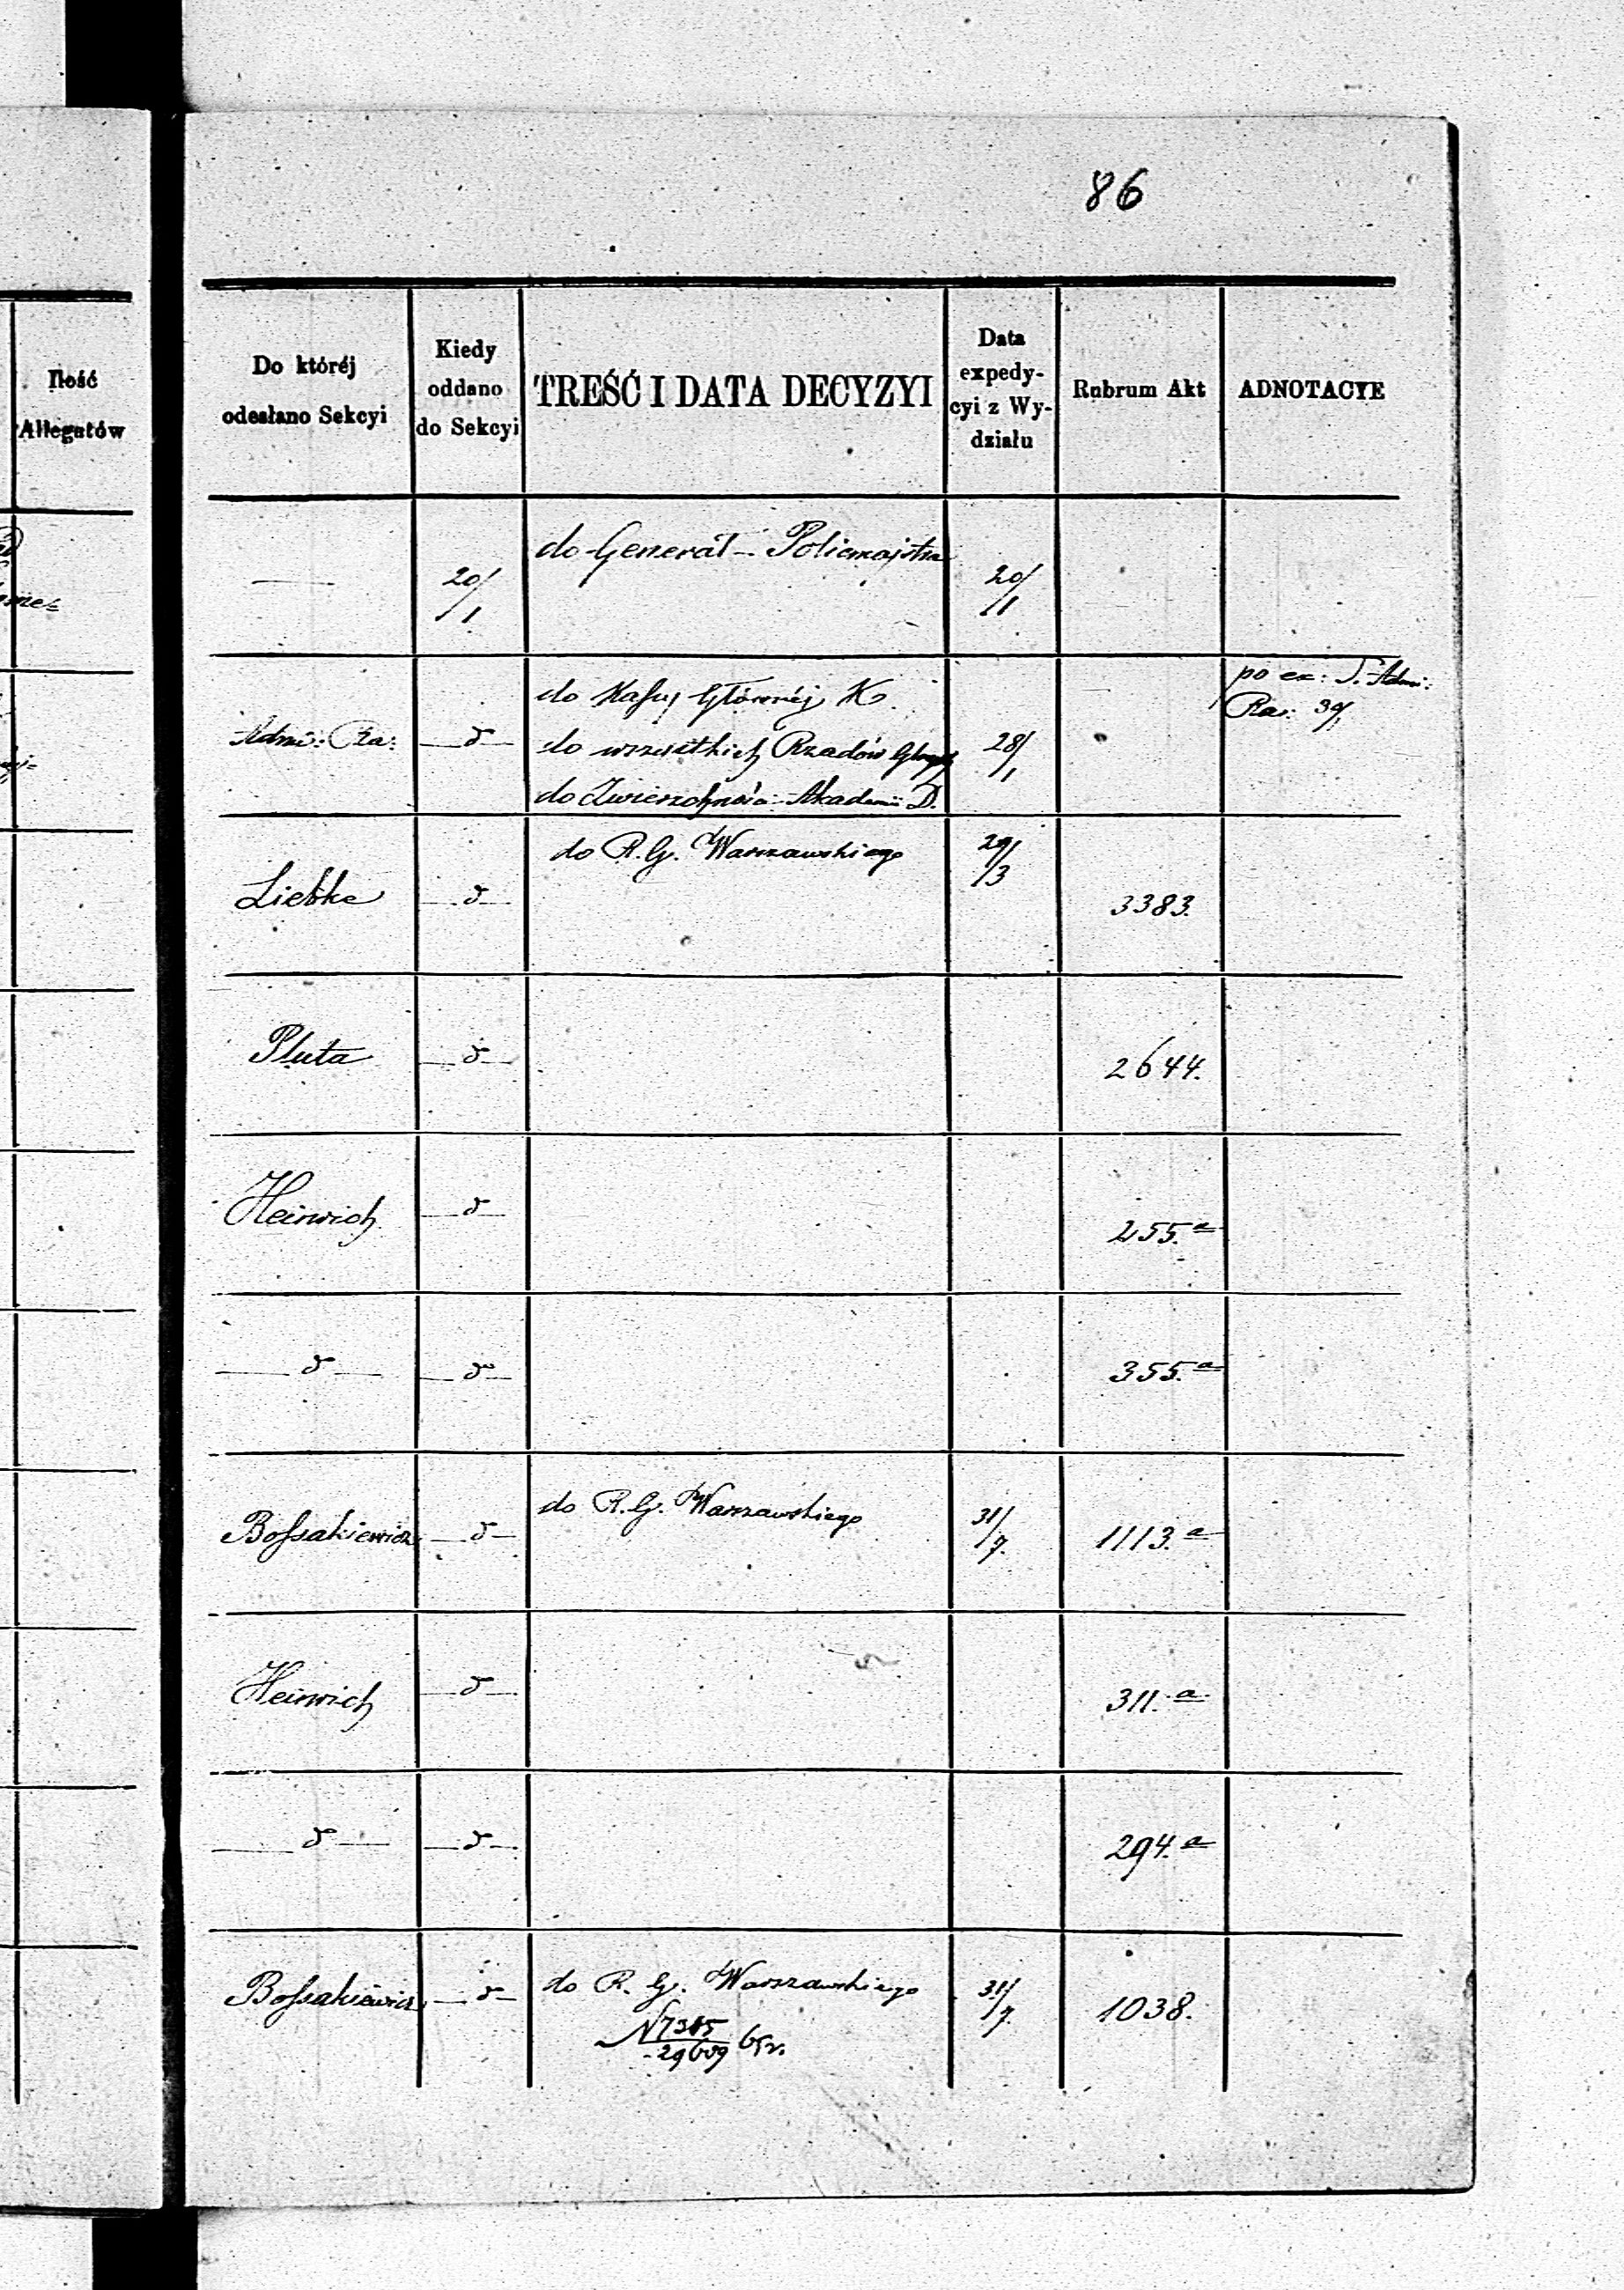 86
Ilość
Allegatów
Do któréj
odesłano Sekcyi
Kiedy
oddano
do Sekcyi
TREŚĆ I DATA DECYZYI
Data
expedy-
cyi z Wy-
działu
Rubrum Akt
ADNOTACYE
20/1
do Generał-Policmajstra
20/1
Admi: Ra:
do Kassy Głównéj K.
do wszystkich Rządów
do Zwierzchności Akademii D.
28/1
po ex: S. Admi:
Ra:
Liebke
do R. G. Warszawskiego
29/3
3383.
Pluta
2644.
Heinrich
255.a
355.a
Bossakiewicz
do R. G. Warszawskiego
31/7.
1113.a
Heinrich
311.a
294.a
Bossakiewicz
do R. G. Warszawskiego
31/7.
1038.